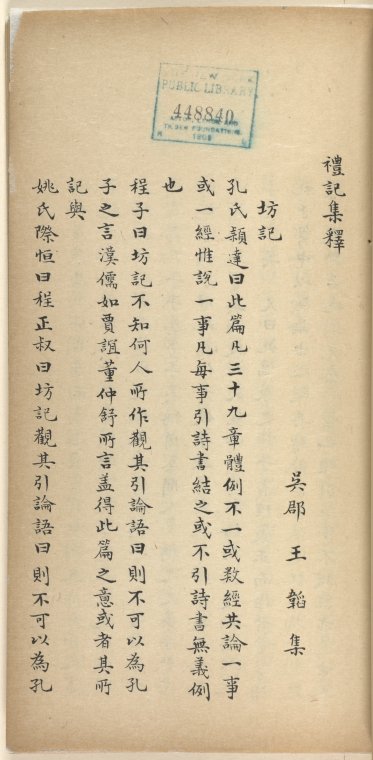 NEW
PUBLIC LIBRARY
448840
ASTOR, LENOX AND
TILDEN FOUNDATIONS
禮記集釋
吳郡 王韜集
坊記
孔氏穎達曰此篇凡三十九章體例不一或数經共論一事
或一經惟說一事凡每事引詩書結之或不引詩書無義例
也
程子曰坊記不知何人所作觀其引論語曰則不可以為孔
子之言漢儒如賈誼董仲舒所言盖得此篇之意或者其所
記與
姚氏際恒曰程正叔曰坊記觀其引論語曰則不可以為孔